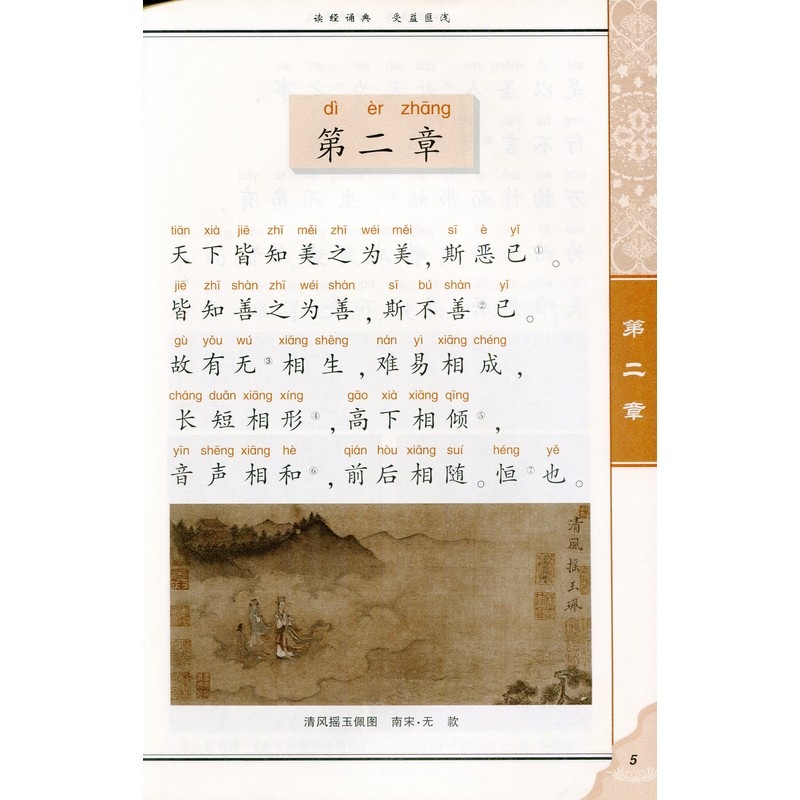 读经诵典 受益匪浅
dì èr zhāng
第二章
tiān xià jiē zhī měi zhī wéi měi sī è yǐ
天下皆知美之为美,斯恶已①。
jiē zhī shàn zhī wéi shàn sī bú shàn yǐ
皆知善之为善,斯不善②已。
gù yǒu wú xiāng shēng nán yì xiāng chéng
故有无③相生,难易相成,
cháng duǎn xiāng xíng gāo xià xiāng qīng
长短相形④,高下相倾⑤,
yīn shēng xiāng hè qián hòu xiāng suí héng yě
音声相和⑥,前后相随。恒⑦也。
清風摇玉珮
清风摇玉佩图 南宋·无 款
第二章
5